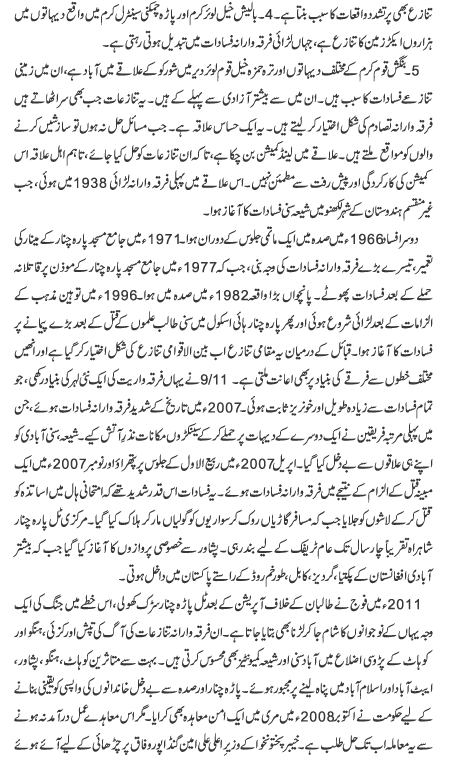 تنازع بھی پرتشدد واقعات کا سبب بنتا ہے۔4۔ بالیش خیل لوئر کرم اور پاڑہ چمکنی سینٹرل کرم میں واقع دیہاتوں میں
ہزاروں ایکڑ زمین کا تنازع ہے، جہاں لڑائی فرقہ وارانہ فسادات میں تبدیل ہوتی رہتی ہے۔
5۔ بنگش قوم کرم کے مختلف دیہاتوں اور ترہ حمزہ خیل قوم لوئر دیر میں شورکو کے علاقے میں آباد ہے، ان میں زمینی
تنازعے فسادات کا سبب ہیں۔ ان میں سے بیشتر آزادی سے پہلے کے ہیں۔ یہ تنازعات جب بھی سر اٹھاتے ہیں
فرقہ وارانہ تصادم کی شکل اختیار کر لیتے ہیں۔ یہ ایک حساس علاقہ ہے۔ جب مسائل حل نہ ہوں تو سازشیں کرنے
والوں کو مواقع ملتے ہیں۔ علاقے میں لینڈ کمیشن بن چکا ہے، تاکہ ان تنازعات کو حل کیا جائے، تاہم اہل علاقہ اس
کمیشن کی کارکردگی اور پیش رفت سے مطمئن نہیں۔ اس علاقے میں پہلی فرقہ وارانہ لڑائی 1938 میں ہوئی، جب
غیر منقسم ہندوستان کے شہر لکھنو میں شیعہ سنی فسادات کا آغاز ہوا۔
دوسرا فساد 1966ء میں صدہ میں ایک ماتمی جلوس کے دوران ہوا۔ 1971ء میں جامع مسجد پارہ چنار کے مینار کی
تعمیر، تیسرے بڑے فرقہ وارانہ فسادات کی وجہ بنی، جب کہ 1977ء میں جامع مسجد پارہ چنار کے موذن پر قاتلانہ
حملے کے بعد فسادات پھوٹے۔ پانچواں بڑا واقعہ 1982ء میں صدہ میں ہوا۔ 1996ء میں توہین مذہب کے
الزامات کے بعد لڑائی شروع ہوئی اور پھر پارہ چنار ہائی اسکول میں سنی طالب علموں کے قتل کے بعد بڑے پیمانے پر
فسادات کا آغاز ہوا۔ قبائل کے درمیان یہ مقامی تنازع اب بین الاقوامی تنازع کی شکل اختیار کر گیا ہے اور انھیں
مختلف خطوں سے فرقے کی بنیاد پر بھی اعانت ملتی ہے۔ 9/11 نے یہاں فرقہ واریت کی ایک نئی لہر کی بنیاد رکھی، جو
تمام فسادات سے زیادہ طویل اور خونریز ثابت ہوئی۔ 2007ء میں تاریخ کے شدید فرقہ وارانہ فسادات ہوئے، جن
میں پہلی مرتبہ فریقین نے ایک دوسرے کے دیہات پر حملہ کر کے سینکڑوں مکانات نذر آتش کیے۔ شیعہ سنی آبادی کو
اپنے ہی علاقوں سے بے دخل کیا گیا۔ اپریل 2007ء میں ربیع الاول کے جلوس پر پتھراؤ اور نومبر 2007ء میں ایک
مبینہ قتل کے الزام کے نتیجے میں فرقہ وارانہ فسادات ہوئے۔ یہ فسادات اس قدر شدید تھے کہ امتحانی ہال میں اساتذہ کو
قتل کر کے لاشوں کو جلایا جب کہ مسافر گاڑیاں روک کر سواریوں کو گولیاں مار کر ہلاک کیا گیا۔ مرکزی ٹل پارہ چنار
شاہراہ تقریباً چار سال تک عام ٹریفک کے لیے بند رہی۔ پشاور سے خصوصی پروازوں کا آغاز کیا گیا جب کہ بیشتر
آبادی افغانستان کے پکتیا، گردیز، کابل، طورخم روڈ کے راستے پاکستان میں داخل ہوتی۔
2011ء میں فوج نے طالبان کے خلاف آپریشن کے بعد ٹل پاڑہ چنار سڑک کھولی، اس خطے میں جنگ کی ایک
وجہ یہاں کے نوجوانوں کا شام جا کر لڑنا بھی بتایا جاتا ہے۔ ان فرقہ وارانہ تنازعات کی آگ کی تپش اورکزئی، ہنگو اور
کوہاٹ کے پڑوسی اضلاع میں آباد سنی اور شیعہ کمیونٹیز بھی محسوس کرتی ہیں۔ بہت سے متاثرین کوہاٹ، ہنگو، پشاور،
ایبٹ آباد اور اسلام آباد میں پناہ لینے پر مجبور ہوئے۔ پاڑہ چنار اور صدہ سے بے دخل خاندانوں کی واپسی کو یقینی بنانے
کے لیے حکومت نے اکتوبر 2008ء میں مری میں ایک امن معاہدہ بھی کرایا۔ مگر اس معاہدے عمل درآمد نہ ہونے
سے یہ معاملہ اب تک حل طلب ہے۔ خیبر پختونخوا کے وزیر اعلی علی امین گنڈا پور وفاق پر چڑھائی کے لیے آئے ہوئے